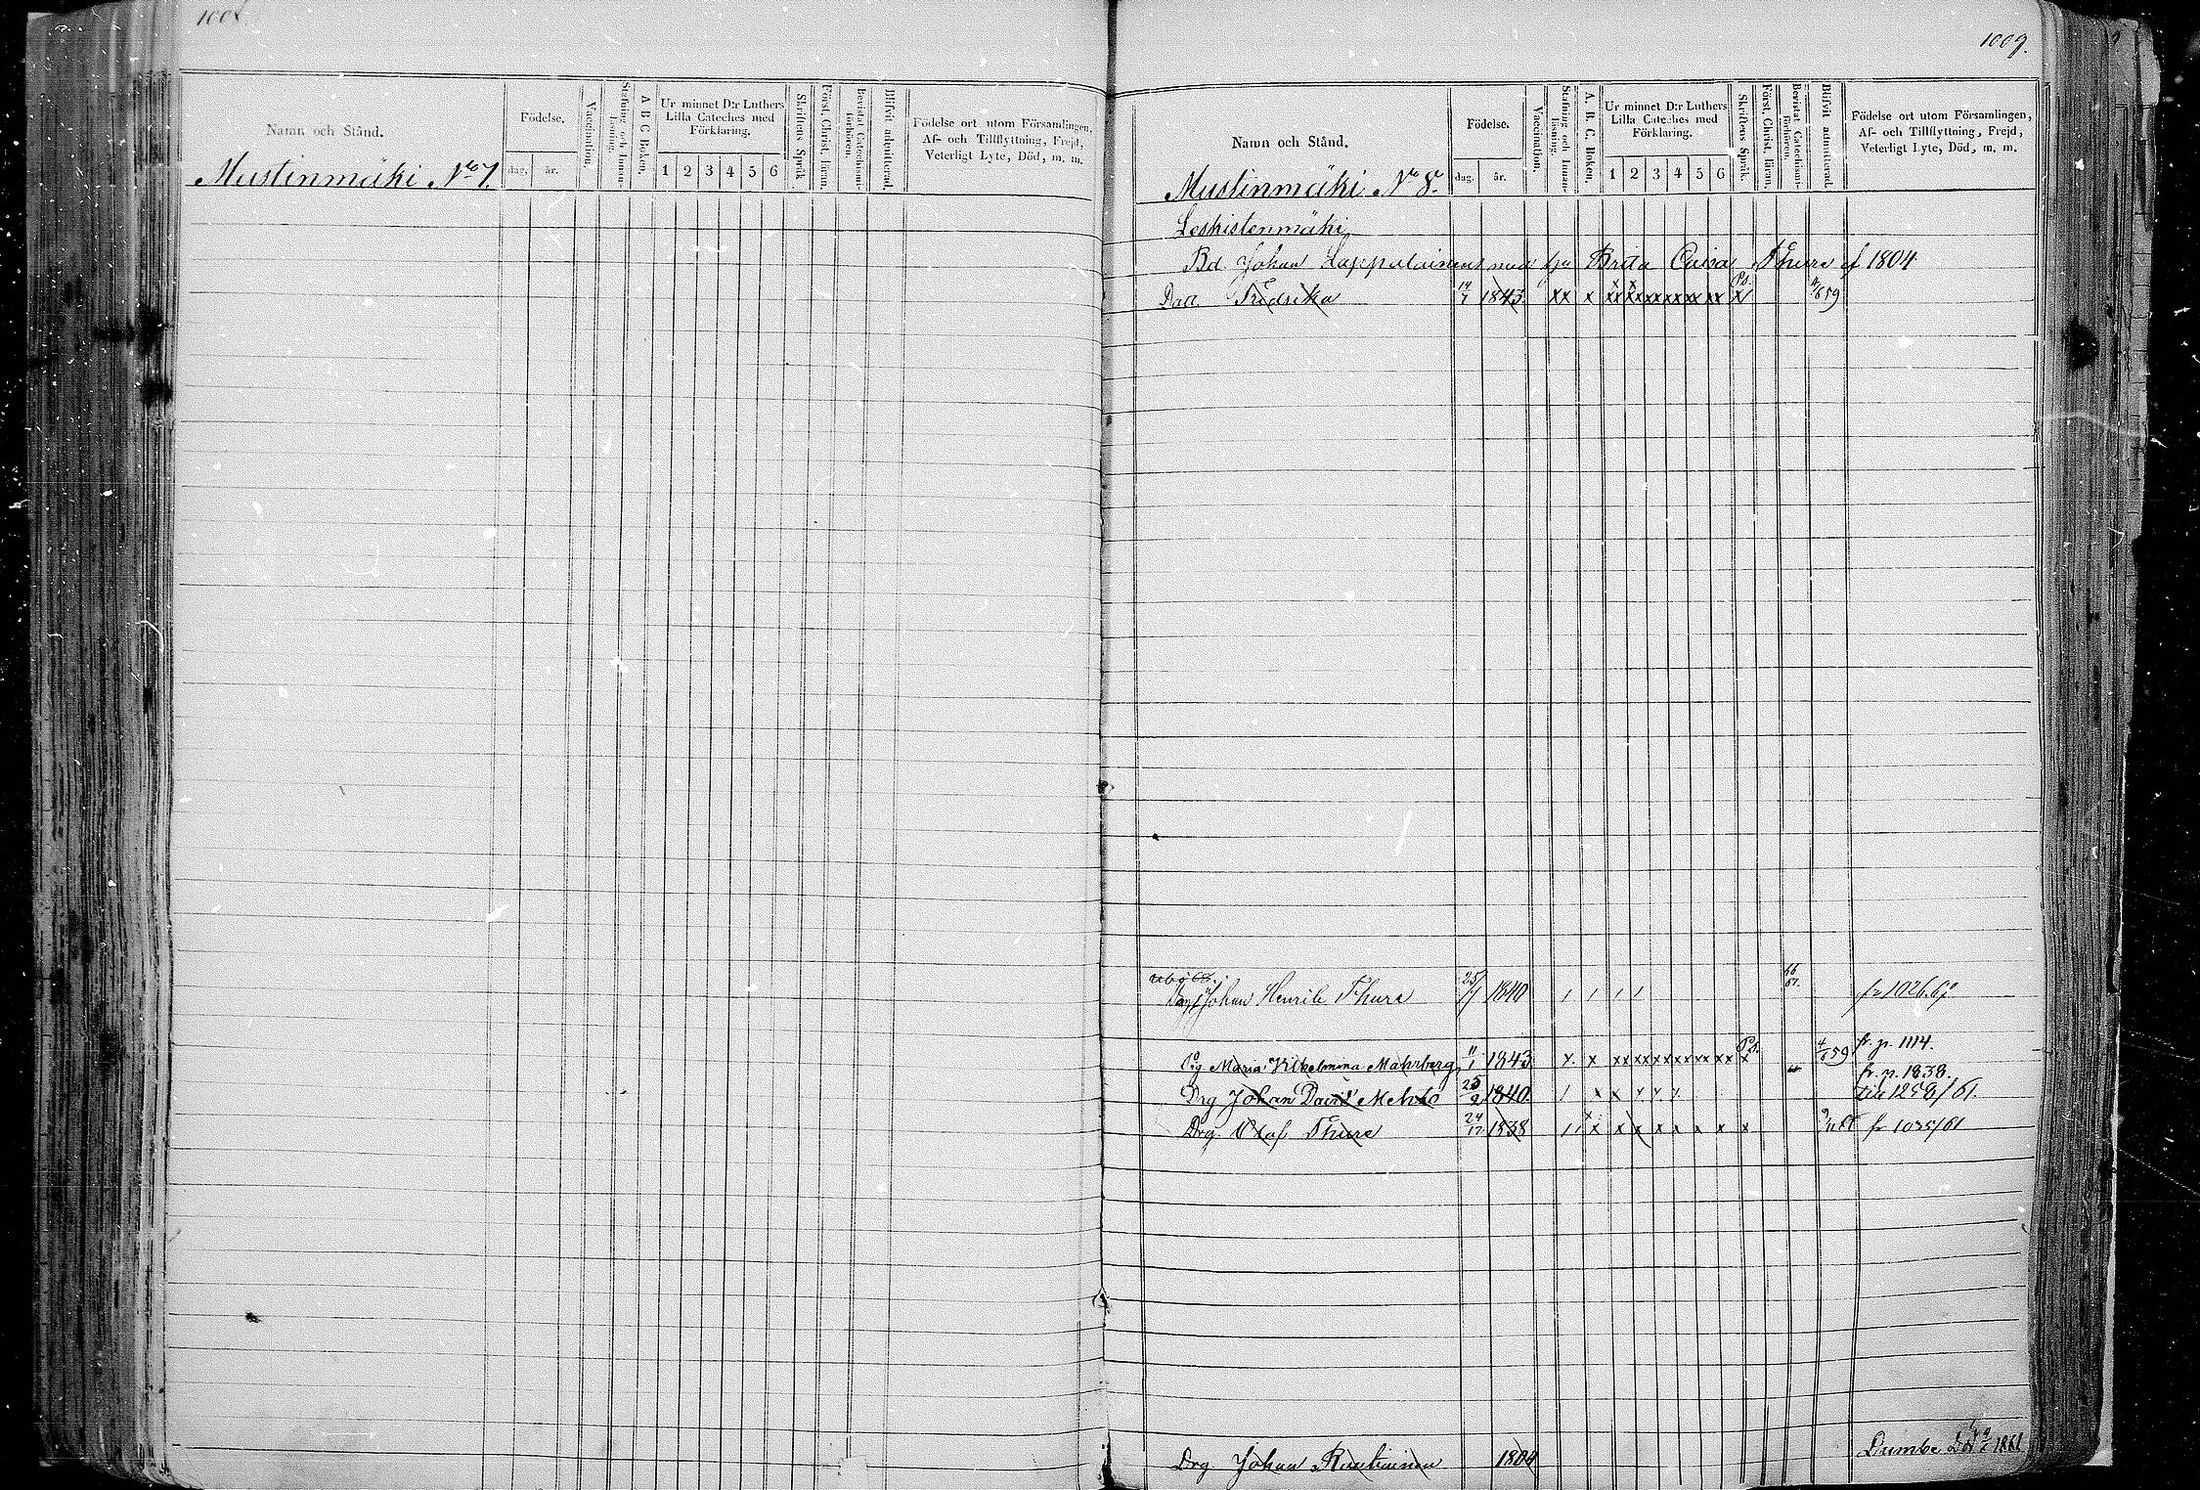 1008
Namn och Stånd.
Födelse.
dag.
år.
Vaccination.
Stafning och Innan-läsning.
A B C Boken.
Ur minnet D:r Luthers Lilla Cateches med Förklaring.
1 2 3 4 5 6
Skriftens Språk.
Först. Christ. läran.
Bevistat Catechismi-förhören.
Blifvit admitterad.
Födelse ort utom Församlingen, Af- och Tillflyttning, Frejd, Veterligt Lyte, Död, m. m.
Mustinmäki No 7.
1009.
Namn och Stånd.
Födelse.
dag.
år.
Vaccination.
Stafning och Innan-läsning.
A. B. C. Boken.
Ur minnet D:r Luthers Lilla Cateches med Förklaring.
1 2 3 4 5 6
Skriftens Språk.
Först. Christ. läran.
Bevistat Catechismi-förhören.
Blifvit admitterad.
Födelse ort utom Församlingen, Af- och Tillflyttning, Frejd, Veterligt Lyte, Död, m. m.
Mustinmäki No 8.
Leskistenmäki
Bd. Johan Lappalainens Brita Caisa Thure f 1804
Fredrika 14/7 1843 xx x xx xx xx xx xx xx x 4/6 59
Johan Henrik Thure 25/7 1840 / / / / 66 67. fr 1026.67
Pig Maria Vilhelmina Mahrberg 11/1 1843 x x xx xx xx xx xx xx x 4/6 59 fr. p. 1114.
fr. p. 1838.
Drg Johan David Mehtо 25/2 1840. / x x x x x
Drg Olaf Thure 24/12 1838 x x x x x x x x fr 1035/61
Drg Johan Rautiainen 1804 Dumbe 1861